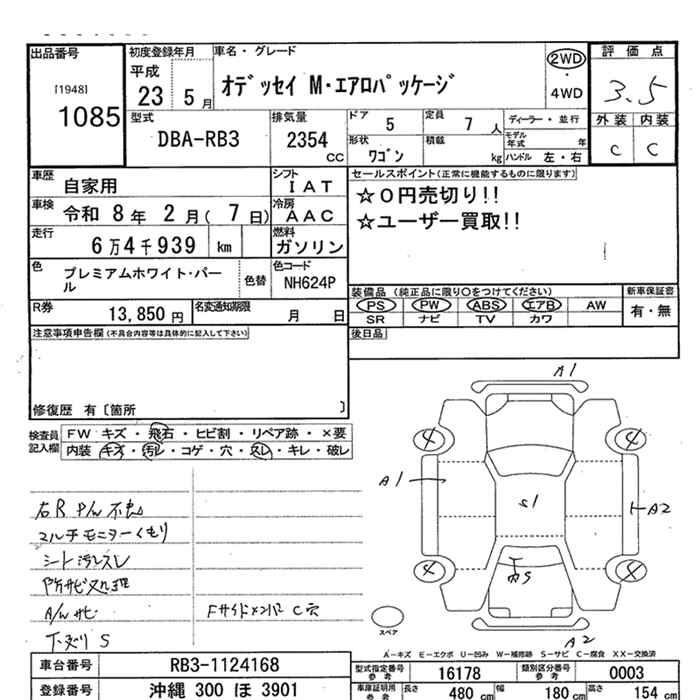 出品番号
[1948]
1085
初度登録年月
平成
23 5 月
車名・グレード
オデッセイ M・エアロパッケージ
2WD
・
4WD
評価点
3.5
外装 内装
C C
型式
DBA-RB3
排気量
2354
CC
ドア
5
定員
7 人
ディーラー・並行
モデル
年式 年
形状
ワゴン
積載
kg
ハンドル 左・右
車歴
自家用
シフト
IAT
車検
令和 8 年 2 月( 7 日)
冷房
AAC
走行
6万4千939 km
燃料
ガソリン
色
プレミアムホワイト・パー
ル
色替
色コード
NH624P
R券
13,850 円
名変通知期限
月 日
セールスポイント(正常に機能するものに限ります)
☆0円売切り!!
☆ユーザー買取!!
装備品 (純正品に限り○をつけてください)
新車保証書
PS PW ABS エアB AW
有・無
SR ナビ TV カワ
後日品
注意事項申告欄(不具合内容等は具体的に記入して下さい)
修復歴 有〔箇所 〕
検査員
記入欄
FW キズ・飛石・ヒビ割・リペア跡・×要
内装 キズ・汚レ・コゲ・穴・スレ・キレ・破レ
右R P/W 不良
マルチモニターくもり
シート汚レスレ
防サビ処理
A/W サビ
Fサイドメンバ C穴
下廻り S
A1
4
4
A1
S1
A2
4
4
S
A2
スペア
A-キズ E-エクボ U-凹み W-補修跡 S-サビ C-腐食 XX-交換済
車台番号
RB3-1124168
登録番号
沖縄 300 ほ 3901
型式指定番号
参考
16178
類別区分番号
参考
0003
車庫証明用
参考
長さ
480 cm
幅
180 cm
高さ
154 cm